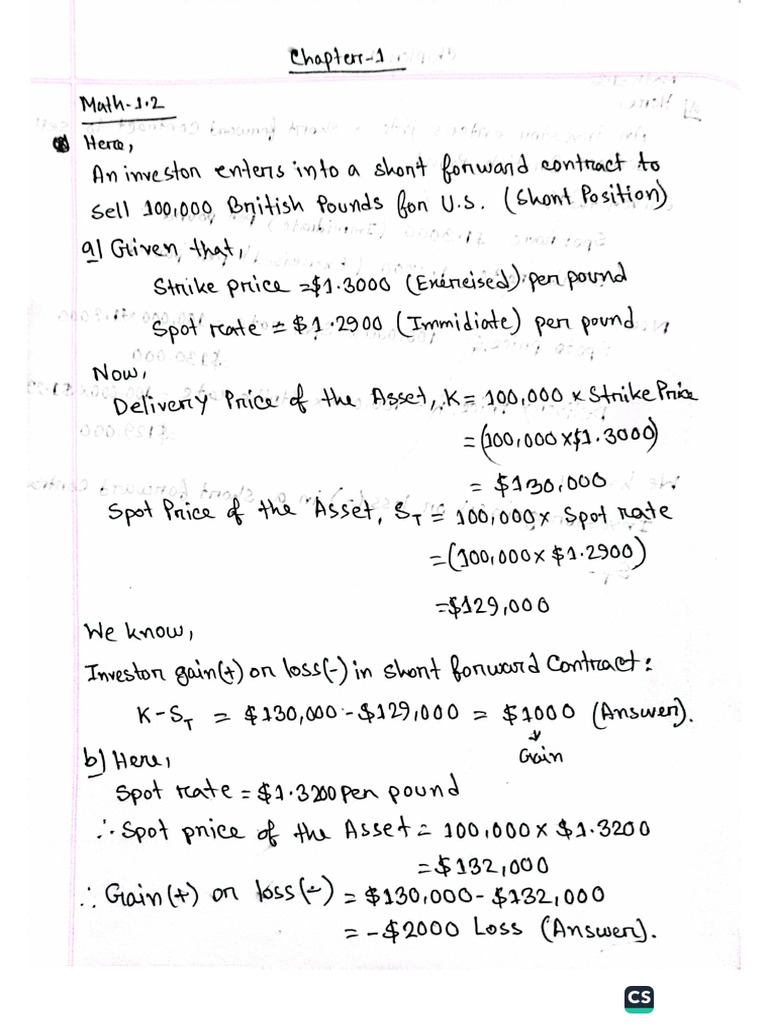 Chapter-1
Math-1.2
Here,
An investor enters into a short forward contract to
sell 100,000 British Pounds for U.S. (Short Position)
a) Given that,
Strike price = $1.3000 (Exercised) per pound
Spot rate = $1.2900 (Immidiate) per pound,
Now,
Delivery Price of the Asset, K = 100,000 x Strike Price
= (100,000 x $1.3000)
= $130,000
Spot Price of the Asset, S_T = 100,000 x Spot rate
= (100,000 x $1.2900)
= $129,000
We know,
Investor gain(+) or loss(-) in short forward Contract:
K-S_T = $130,000 - $129,000 = $1000 (Answer).
↓
Gain
b) Here,
Spot rate = $1.3200 per pound
∴ Spot price of the Asset = 100,000 x $1.3200
= $132,000
∴ Gain(+) or loss(-) = $130,000 - $132,000
= -$2000 Loss (Answer).
CS